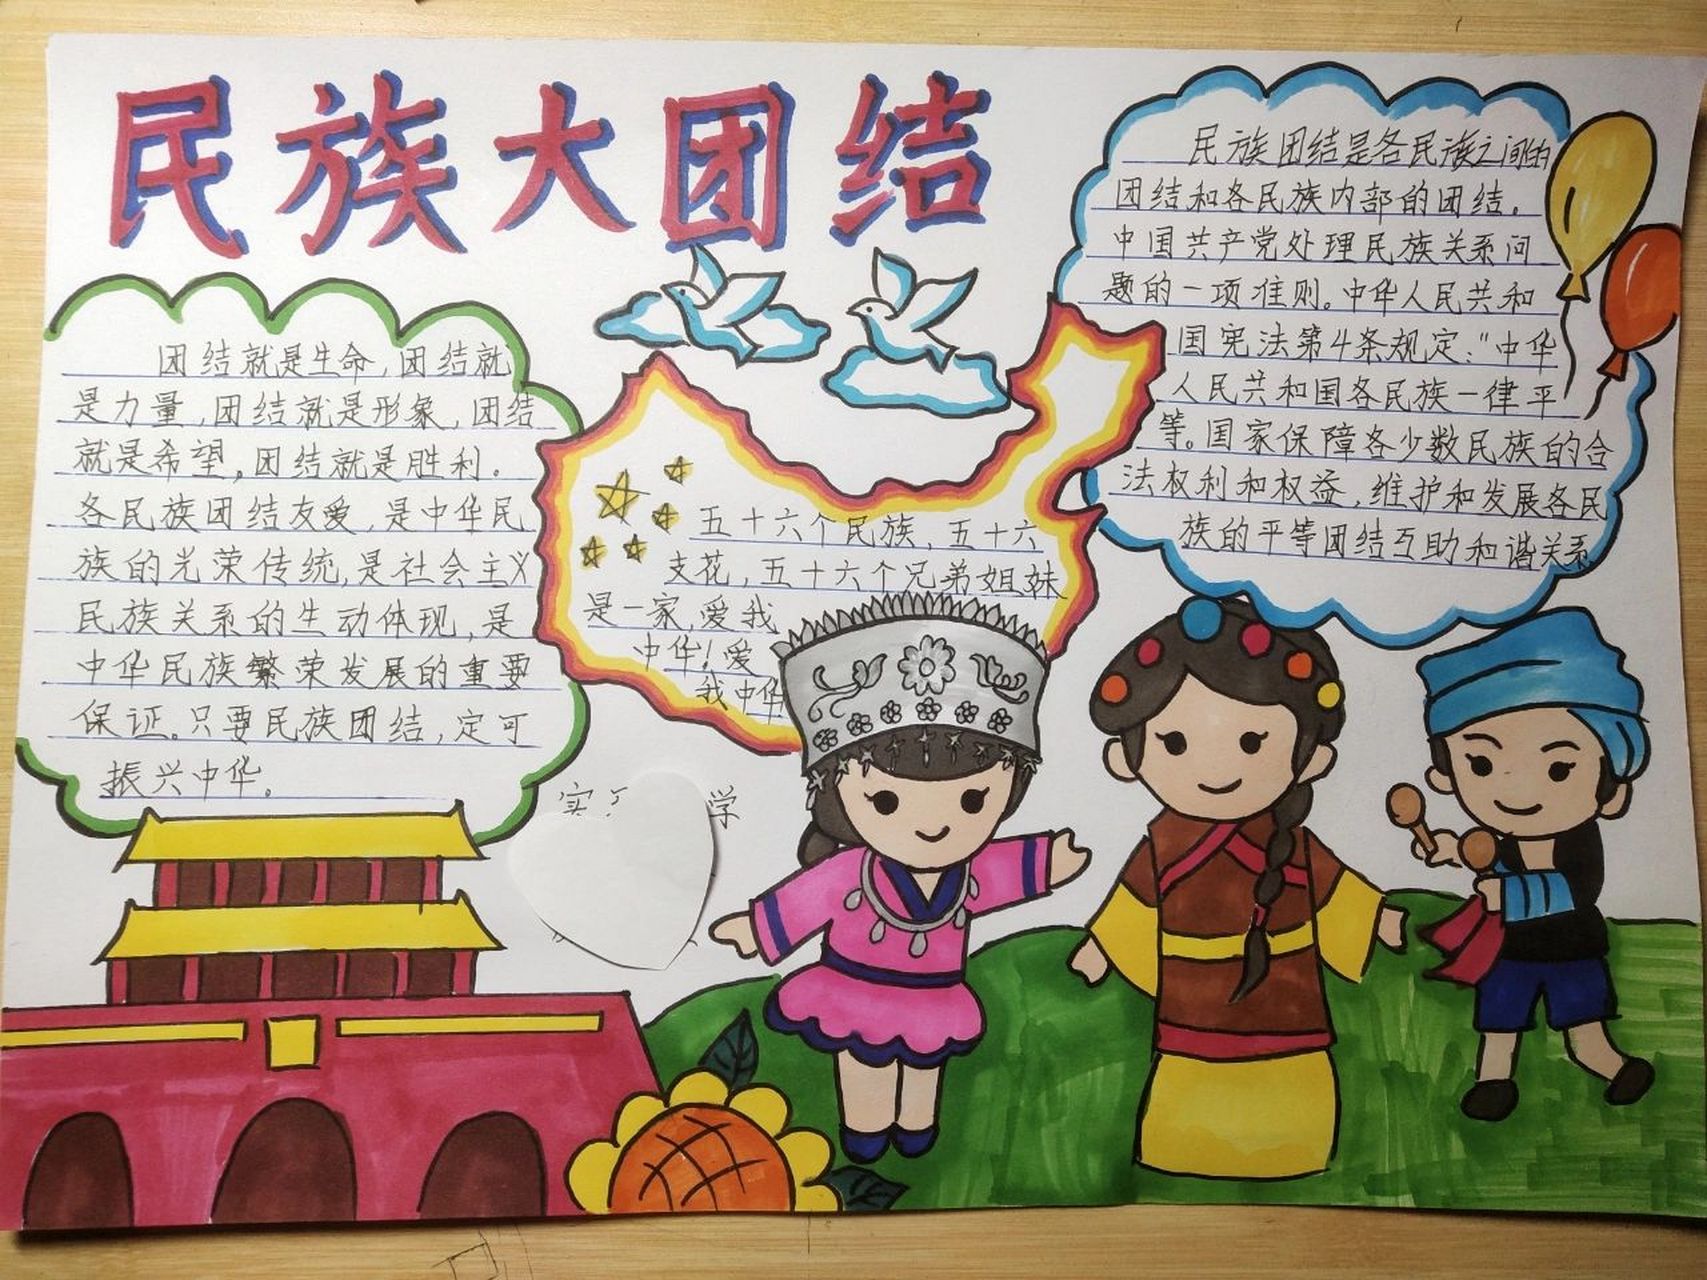 民族大团结
团结就是生命,团结就
是力量,团结就是形象,团结
就是希望。团结就是胜利。
各民族团结友爱,是中华民
族的光荣传统,是社会主义
民族关系的生动体现,是
中华民族繁荣发展的重要
保证。只要民族团结,定可
振兴中华。
五十六个民族,五十六
支花,五十六个兄弟姐妹
是一家,爱我
中华!爱
我中华
民族团结是各民族之间的
团结和各民族内部的团结。
中国共产党处理民族关系问
题的一项准则。中华人民共和
国宪法第4条规定:"中华
人民共和国各民族一律平
等。国家保障各少数民族的合
法权利和权益,维护和发展各民
族的平等团结互助和谐关系
实 学